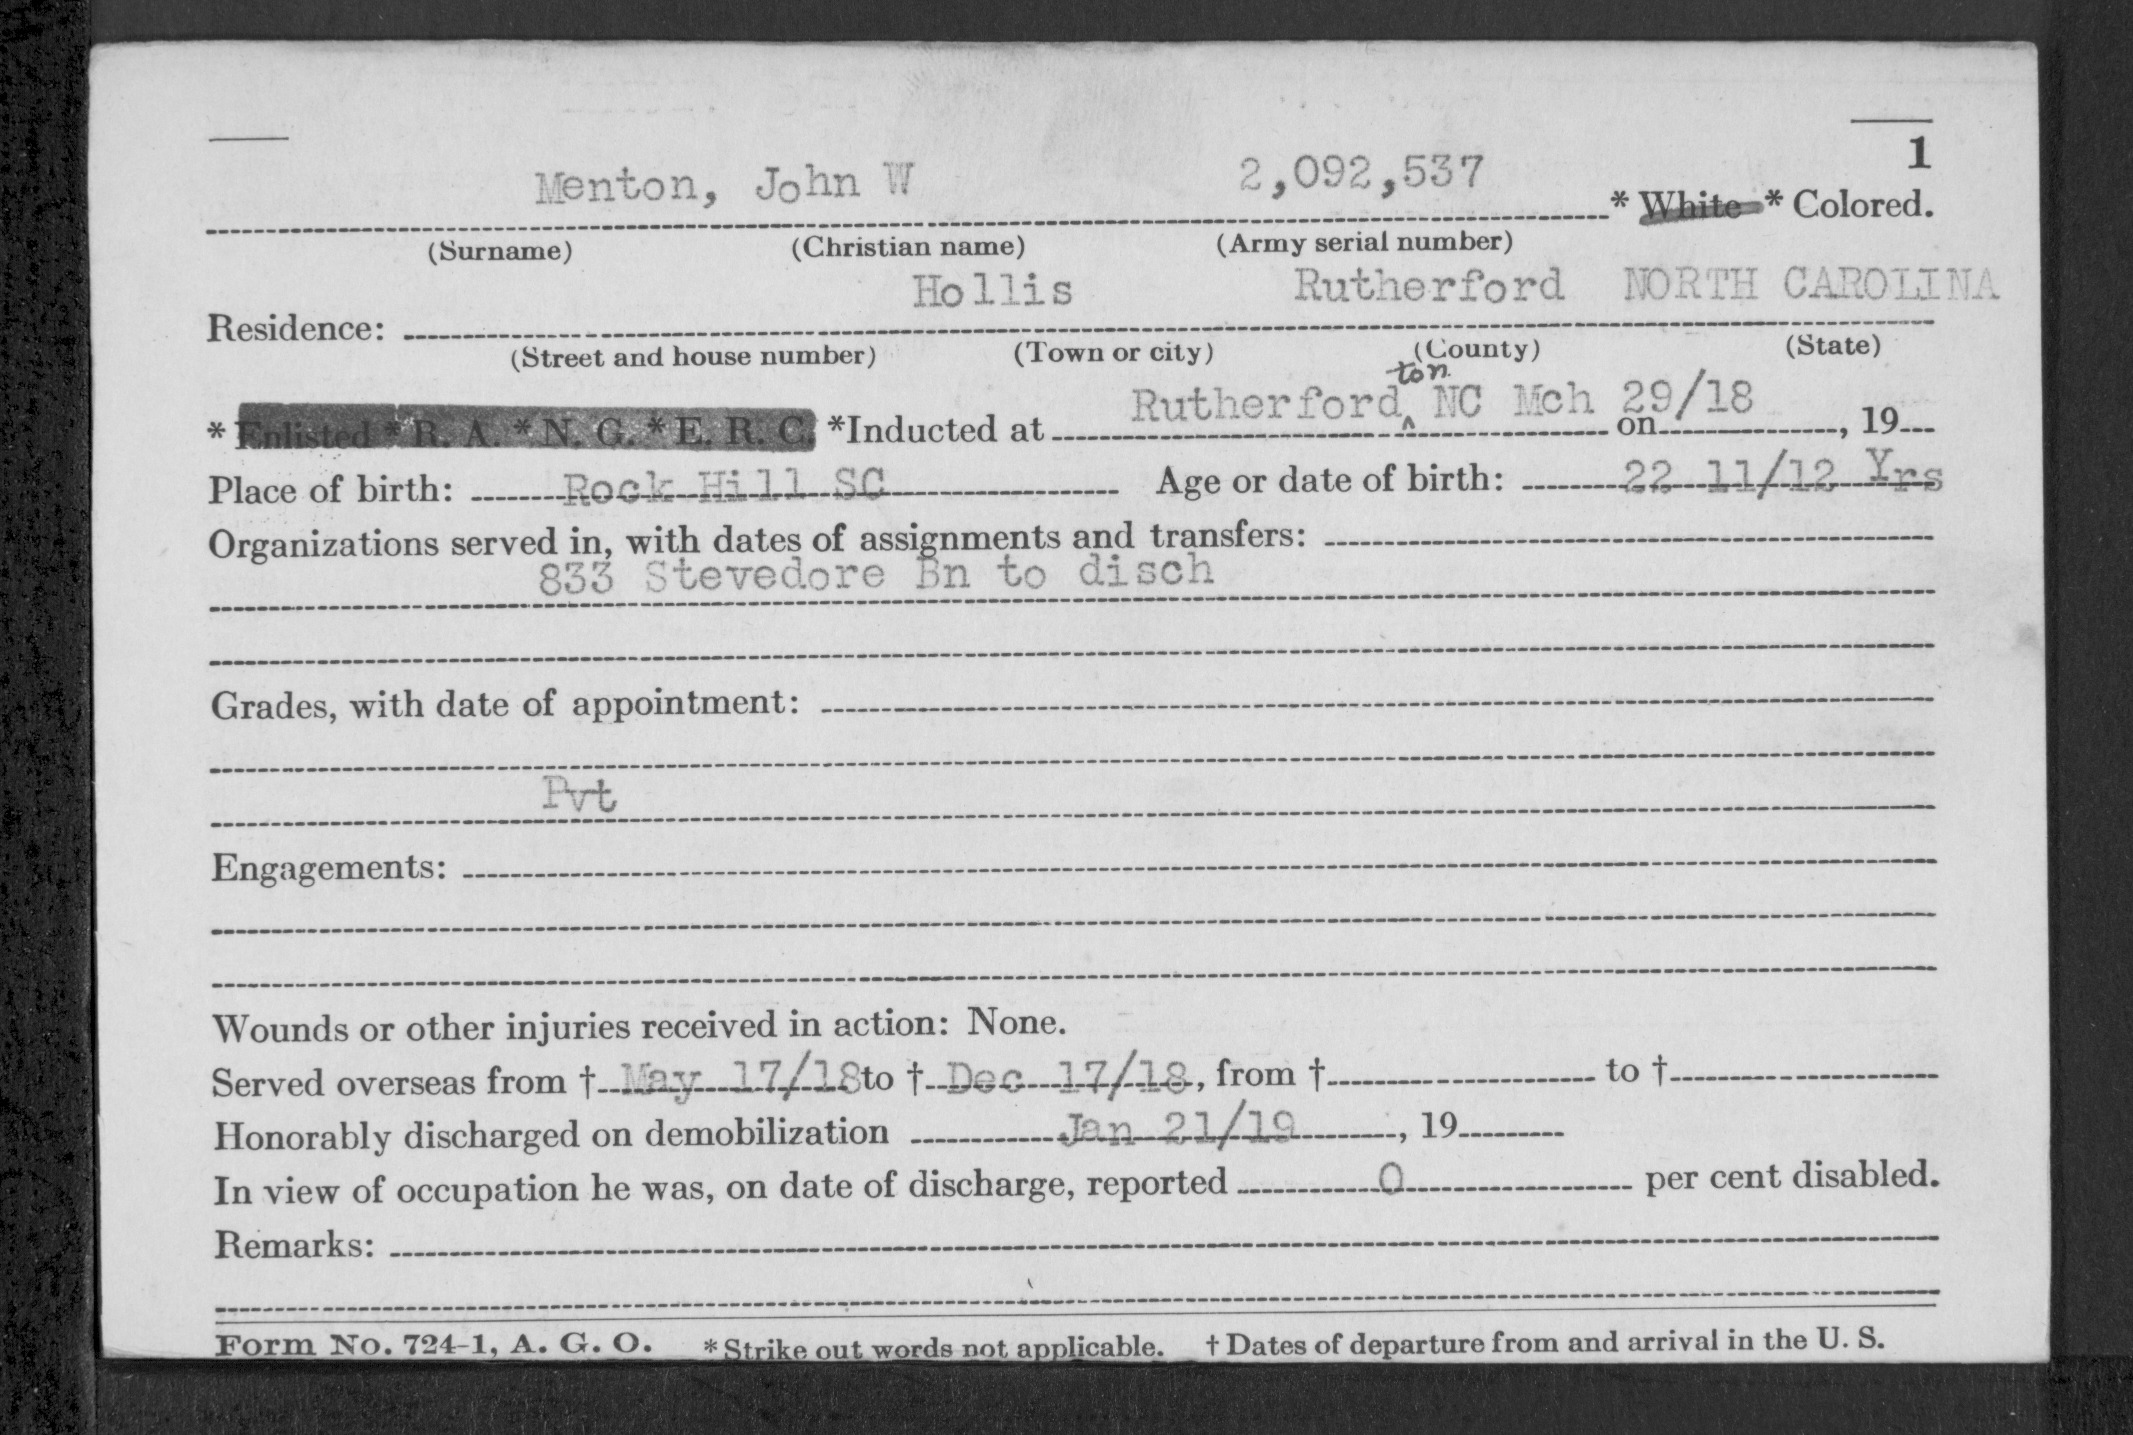 1
Menton, John W 2,092,537 * White * Colored.
(Surname) (Christian name) (Army serial number)
Hollis Rutherford NORTH CAROLINA
Residence:
(Street and house number) (Town or city) (County) (State)
ton
* Enlisted * R. A. * N. G. * E. R. C. *Inducted at Rutherford^ NC Mch 29/18 on , 19
Place of birth: Rock Hill SC Age or date of birth: 22 11/12 Yrs
Organizations served in, with dates of assignments and transfers:
833 Stevedore Bn to disch
Grades, with date of appointment:
Pvt
Engagements:
Wounds or other injuries received in action: None.
Served overseas from † May 17/18 to † Dec 17/18, from † to †
Honorably discharged on demobilization Jan 21/19 , 19
In view of occupation he was, on date of discharge, reported 0 per cent disabled.
Remarks:
Form No. 724-1, A. G. O. * Strike out words not applicable. † Dates of departure from and arrival in the U. S.